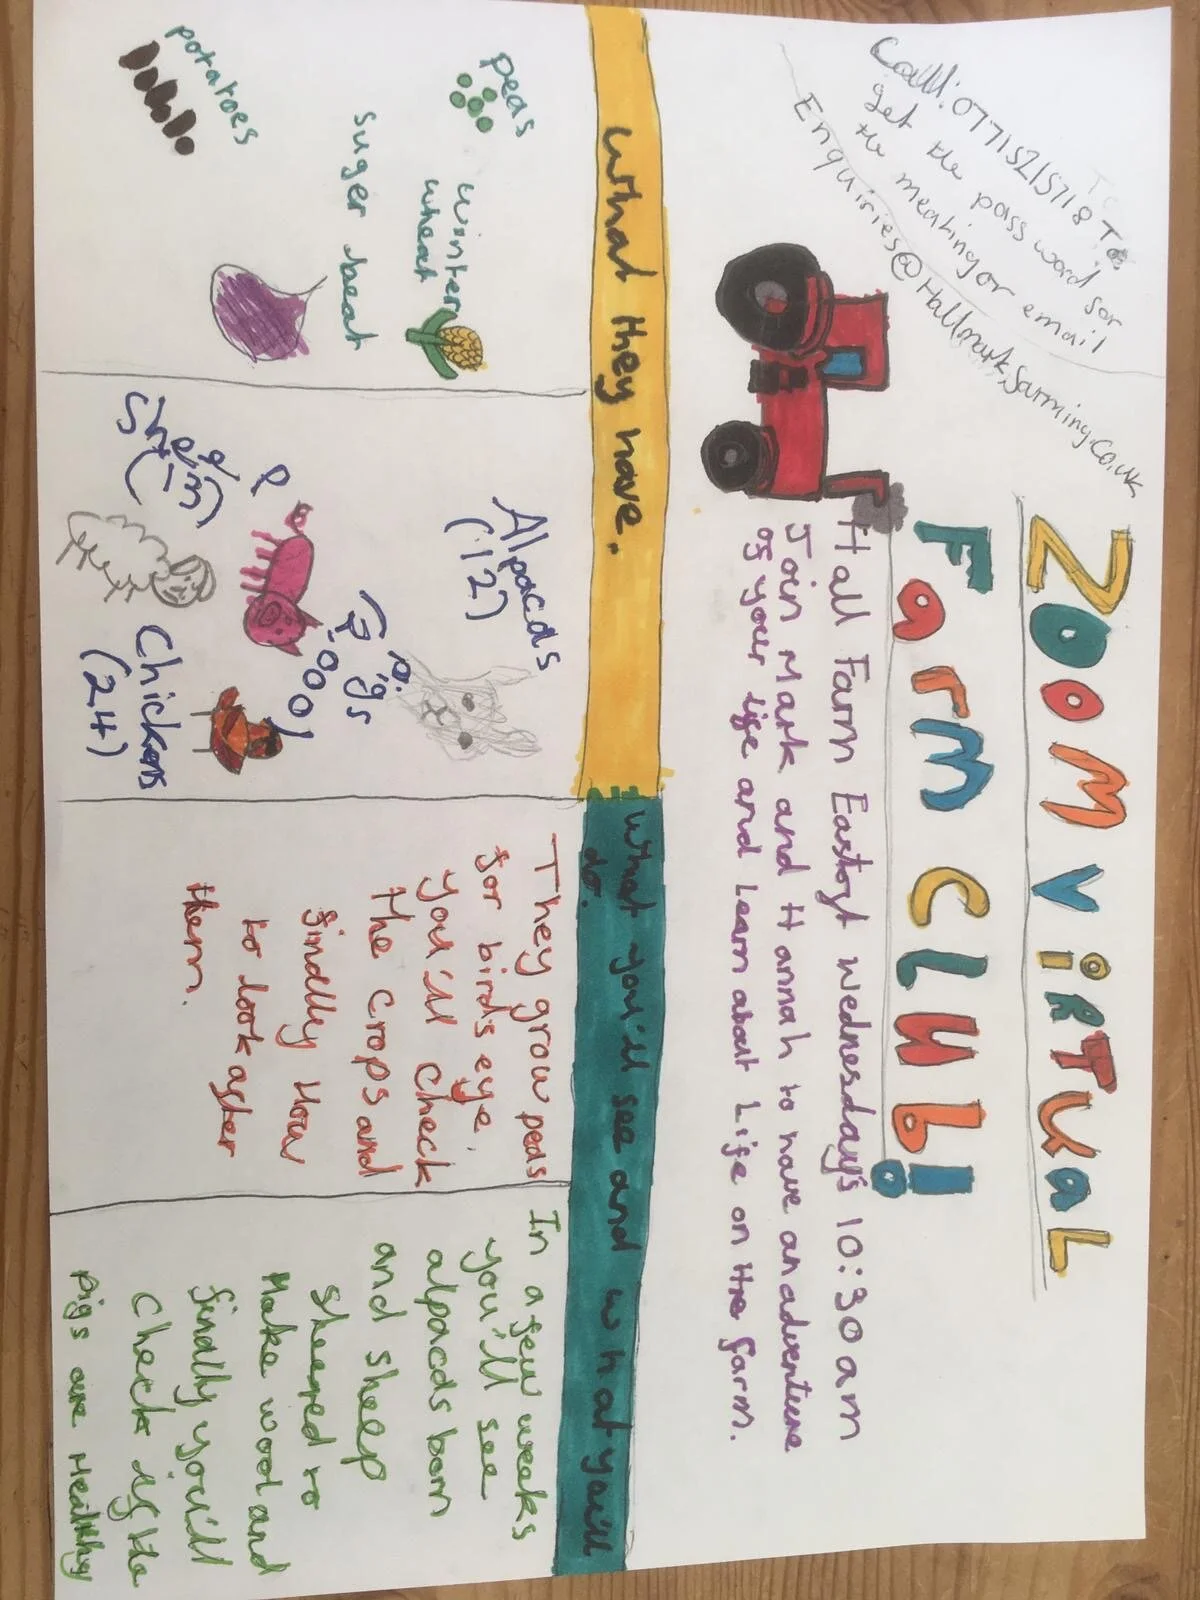 Zoom virtual
Farm club!
Call: 07715215718 To
get the pass word for
the meating or email
Enquiries@Hallmark,farming.co.uk
Hall Farm Eastoft wednesday's 10:30am
Join Mark and Hannah to have an adventure
of your life and Learn about Life on the farm.
What they have.
peas
winter
wheat
suger beat
potatoes
Alpacas
(12)
Pigs
Sheep
Chickens
(24)
what you'll see and what you'll
do.
They grow peas
for birds eye,
you'll check
the crops and
finally How
to look after
them.
In a few weaks
you'll see
alpacas born
and sheep
sheered to
Make wool and
finally you'll
Check if the
pigs are Healthy